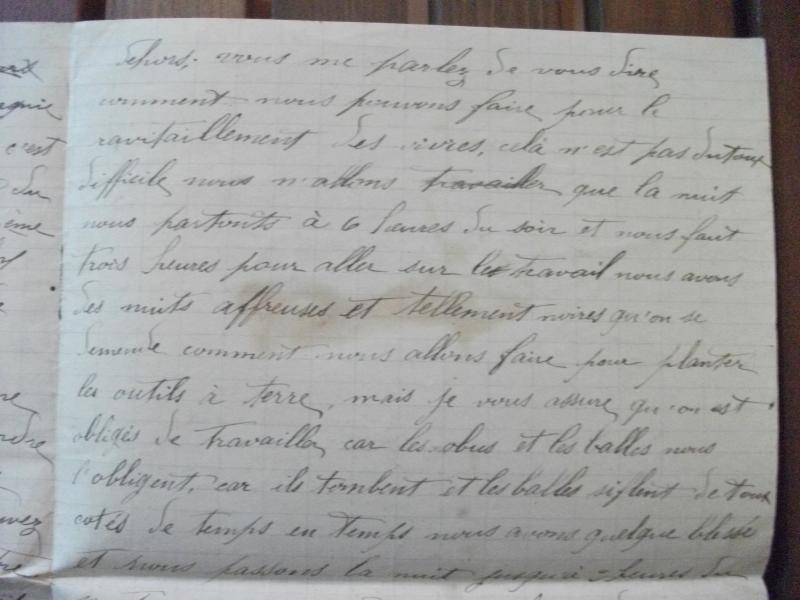 dehors, vous me parlez de vous dire
comment nous pouvons faire pour le
ravitaillement des vivres, cela n'est pas du toux
difficile nous n'allons travailler que la nuit
nous partonts à 6 heures du soir et nous faut
trois heures pour aller sur le travail nous avons
des nuits affreuses et tellement noires qu'on se
demende comment nous allons faire pour planter
les outils à terre, mais je vous assure qu'on est
obligés de travailler car les obus et les balles nous
l'obligent, car ils tombent et les balles siflent de toux
cotés de temps en temps nous avons quelque blessé
et nous passons la nuit jusqu'à heures du